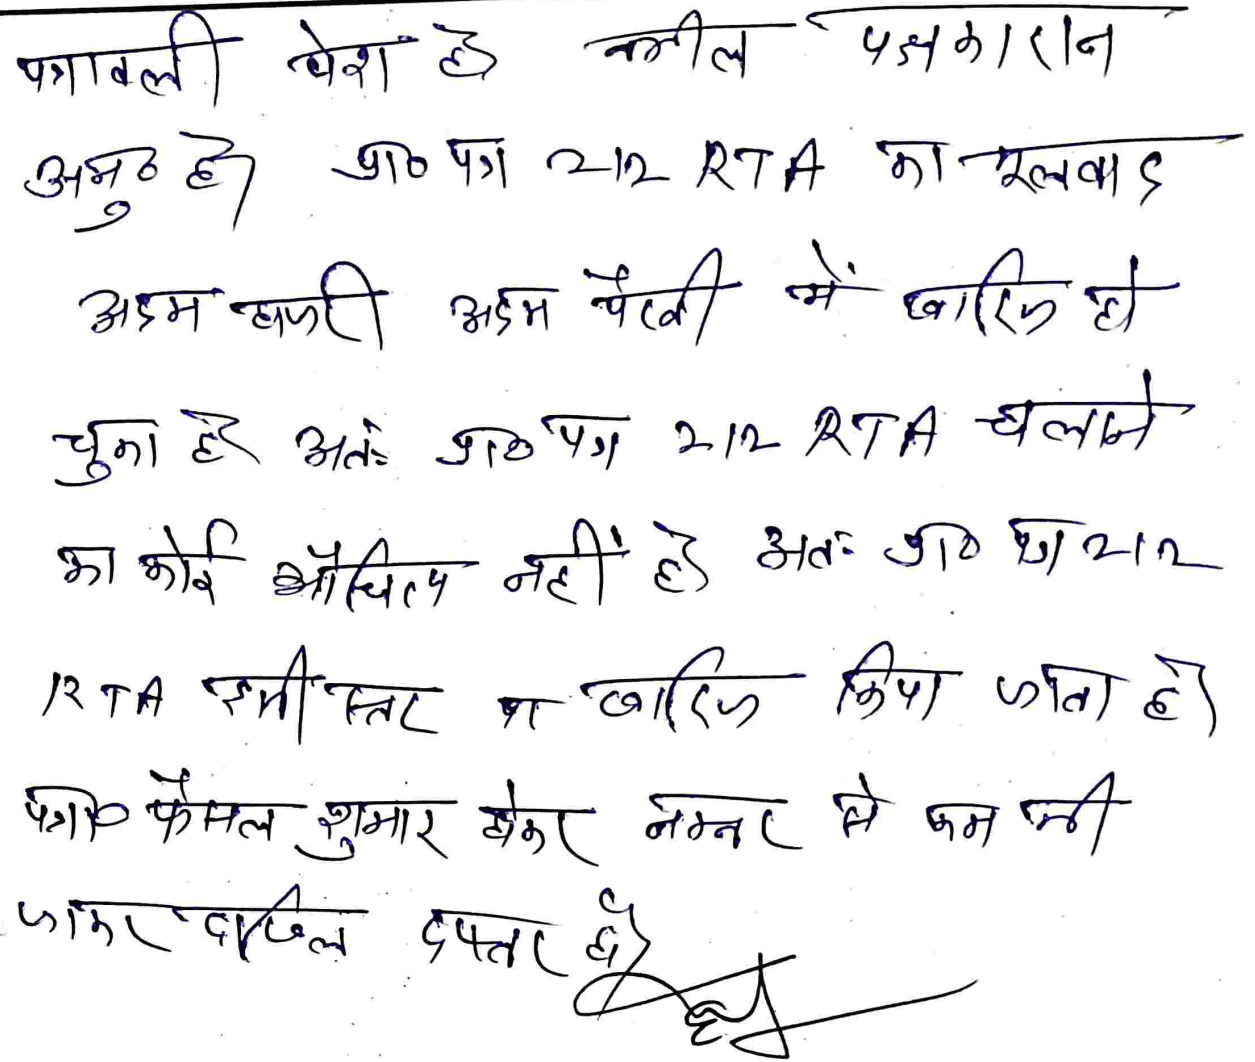 पत्रावली पेश है वकील पक्षकारान
अनु० है। प्रा० पत्र 212 RTA का मूलवाद
अदम हाजरी अदम पैरवी में खारिज हो
चुका है अतः प्रा० पत्र 212 RTA चलाने
का कोई औचित्य नहीं है। अतः प्रा० पत्र 212
RTA इसी स्तर पर खारिज किया जाता है।
पत्रा० फैसल शुमार होकर नम्बर से कम की
जाकर दाखिल दफ्तर हो।